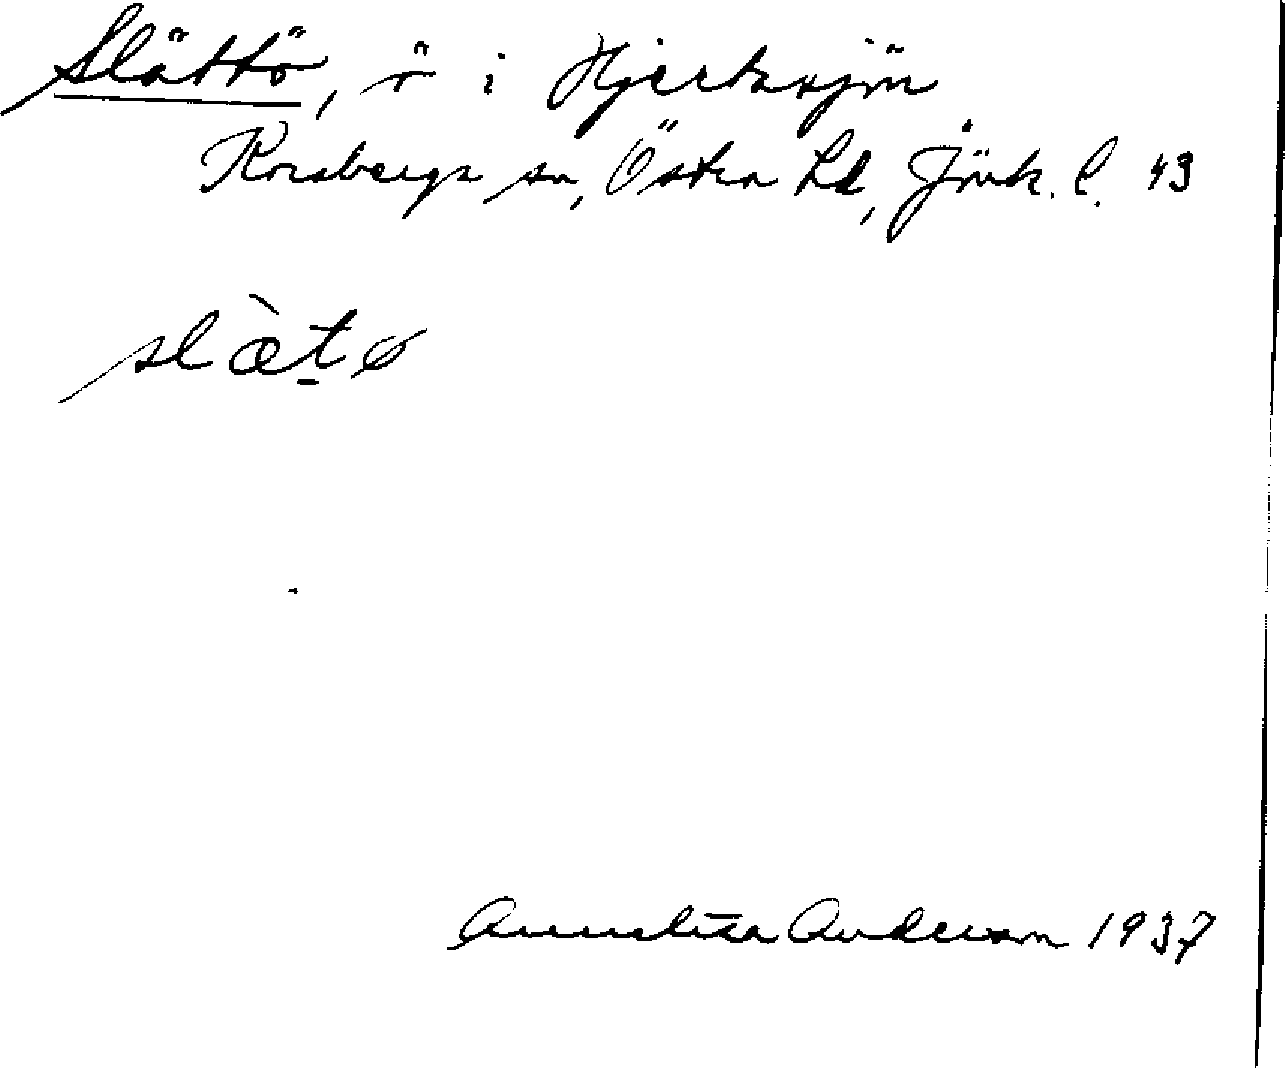 Slättö, ö i Hjertasjön
Korsberga sn, Östra hd, Jönk. l. 43
slæ̀t̠ø
Annalisa Anderson 1937